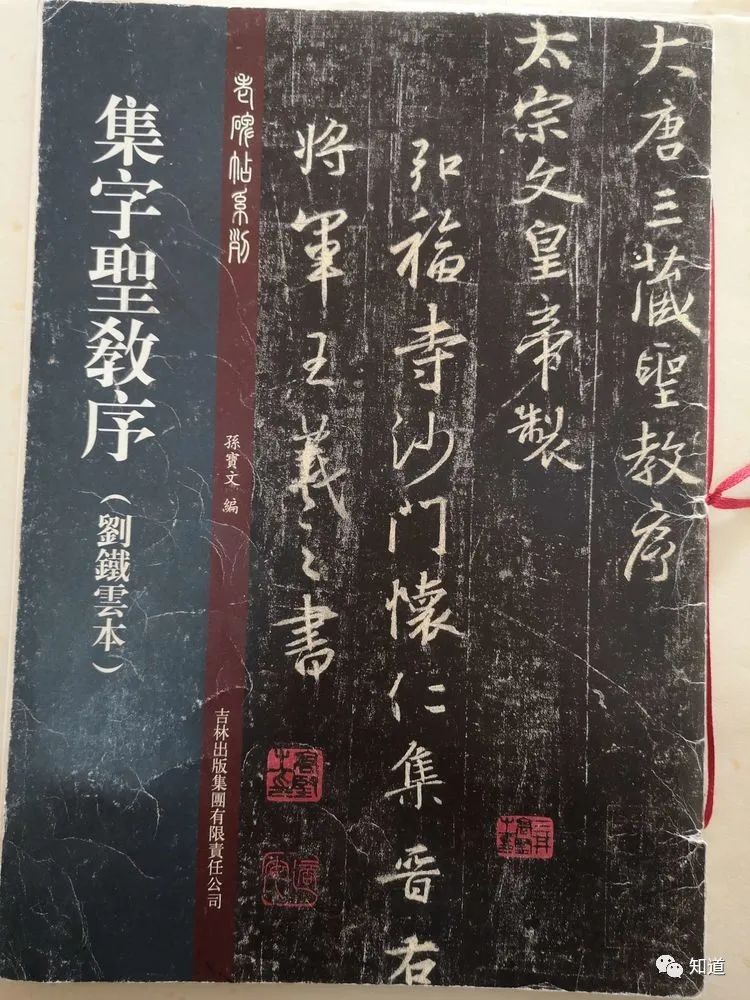 大唐三藏聖教序
太宗文皇帝製
弘福寺沙門懷仁集晋右
將軍王羲之書
老碑帖系列
孫寶文 編
吉林出版集團有限責任公司
集字聖教序
(劉鐵雲本)
知道